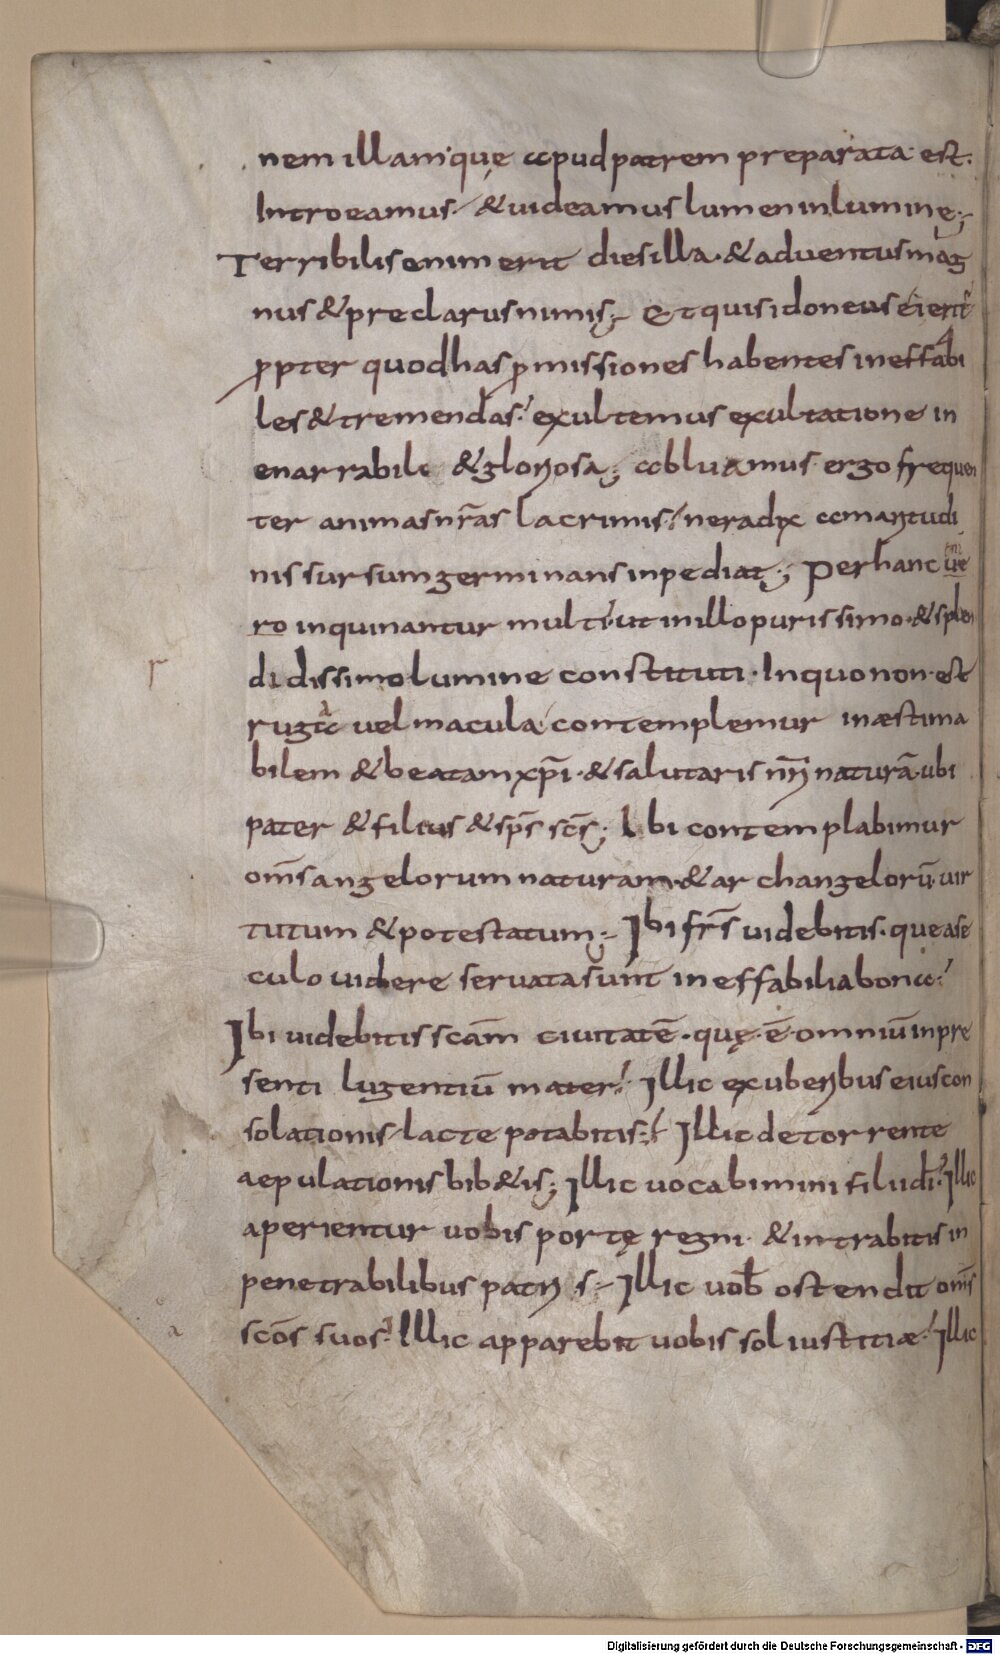 nem illam· quę apud patrem preparata est.
Introeamus· & uideamus lumen in lumine;
Terribilis enim erit dies illa· & aduentus mag
nus & preclarus nimis; Et quis idoneus ei erit
ꝓpter quod has ꝓmissiones habentes ineffabi
les & tremendas· exultemus exultatione in
enarrabile & gloriosa; abluamus ergo frequen
ter animas nr̄as lacrimis· ne radix amaritudi
nis sursum germinans inpediat; Per hanc ue
ro inquinantur multi· ut in illo purissimo· & splen
r
didissimo lumine constituti· In quo non est
ruga uel macula· contemplemur inæstima
bilem & beatam xp̄i· & salutaris nr̄i naturā· ubi
pater & filius & sp̄s sc̄s; Ibi contemplabimur
om̄s angelorum naturam· & archangelorū· uir
tutum & potestatum; Ibi fr̄s uidebitis· que a se
culo uidere seruata sunt ineffabilia bona·
Ibi uidebitis sc̄am ciuitatē· quę ē omniū in pre
senti lugentiū mater· Illic ex uberibus eius con
solationis lacte potabitis· Illic de torrente
aepulationis bib&is; Illic uocabimini filii dī· Illic
aperientur uobis portę regni· & intrabitis in
penetrabilibus patris· Illic uob̄ ostendit om̄s
sc̄os suos· Illic apparebit uobis sol iustitiæ· Illic
Digitalisierung gefördert durch die Deutsche Forschungsgemeinschaft - DFG